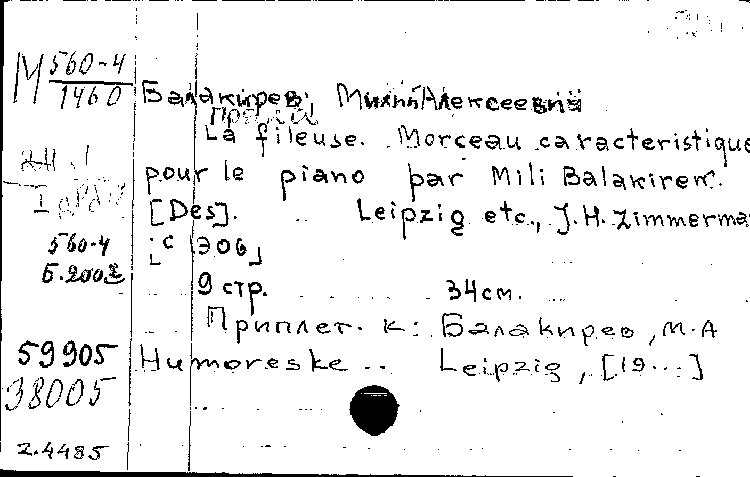 М 560-4
1460
Балакирев, Милий Алексеевич
Пряха
La fileuse. Morceau caracteristique
pour le piano par Mili Balakirew.
[Des]. Leipzig etc., J.H. Zimmerma
560-4
[c 1906]
Б.2002
9 стр. 34 см.
Приплет. к: Балакирев, М.А
59905
Humoreske .. Leipzig, [19...]
38005
2.4485